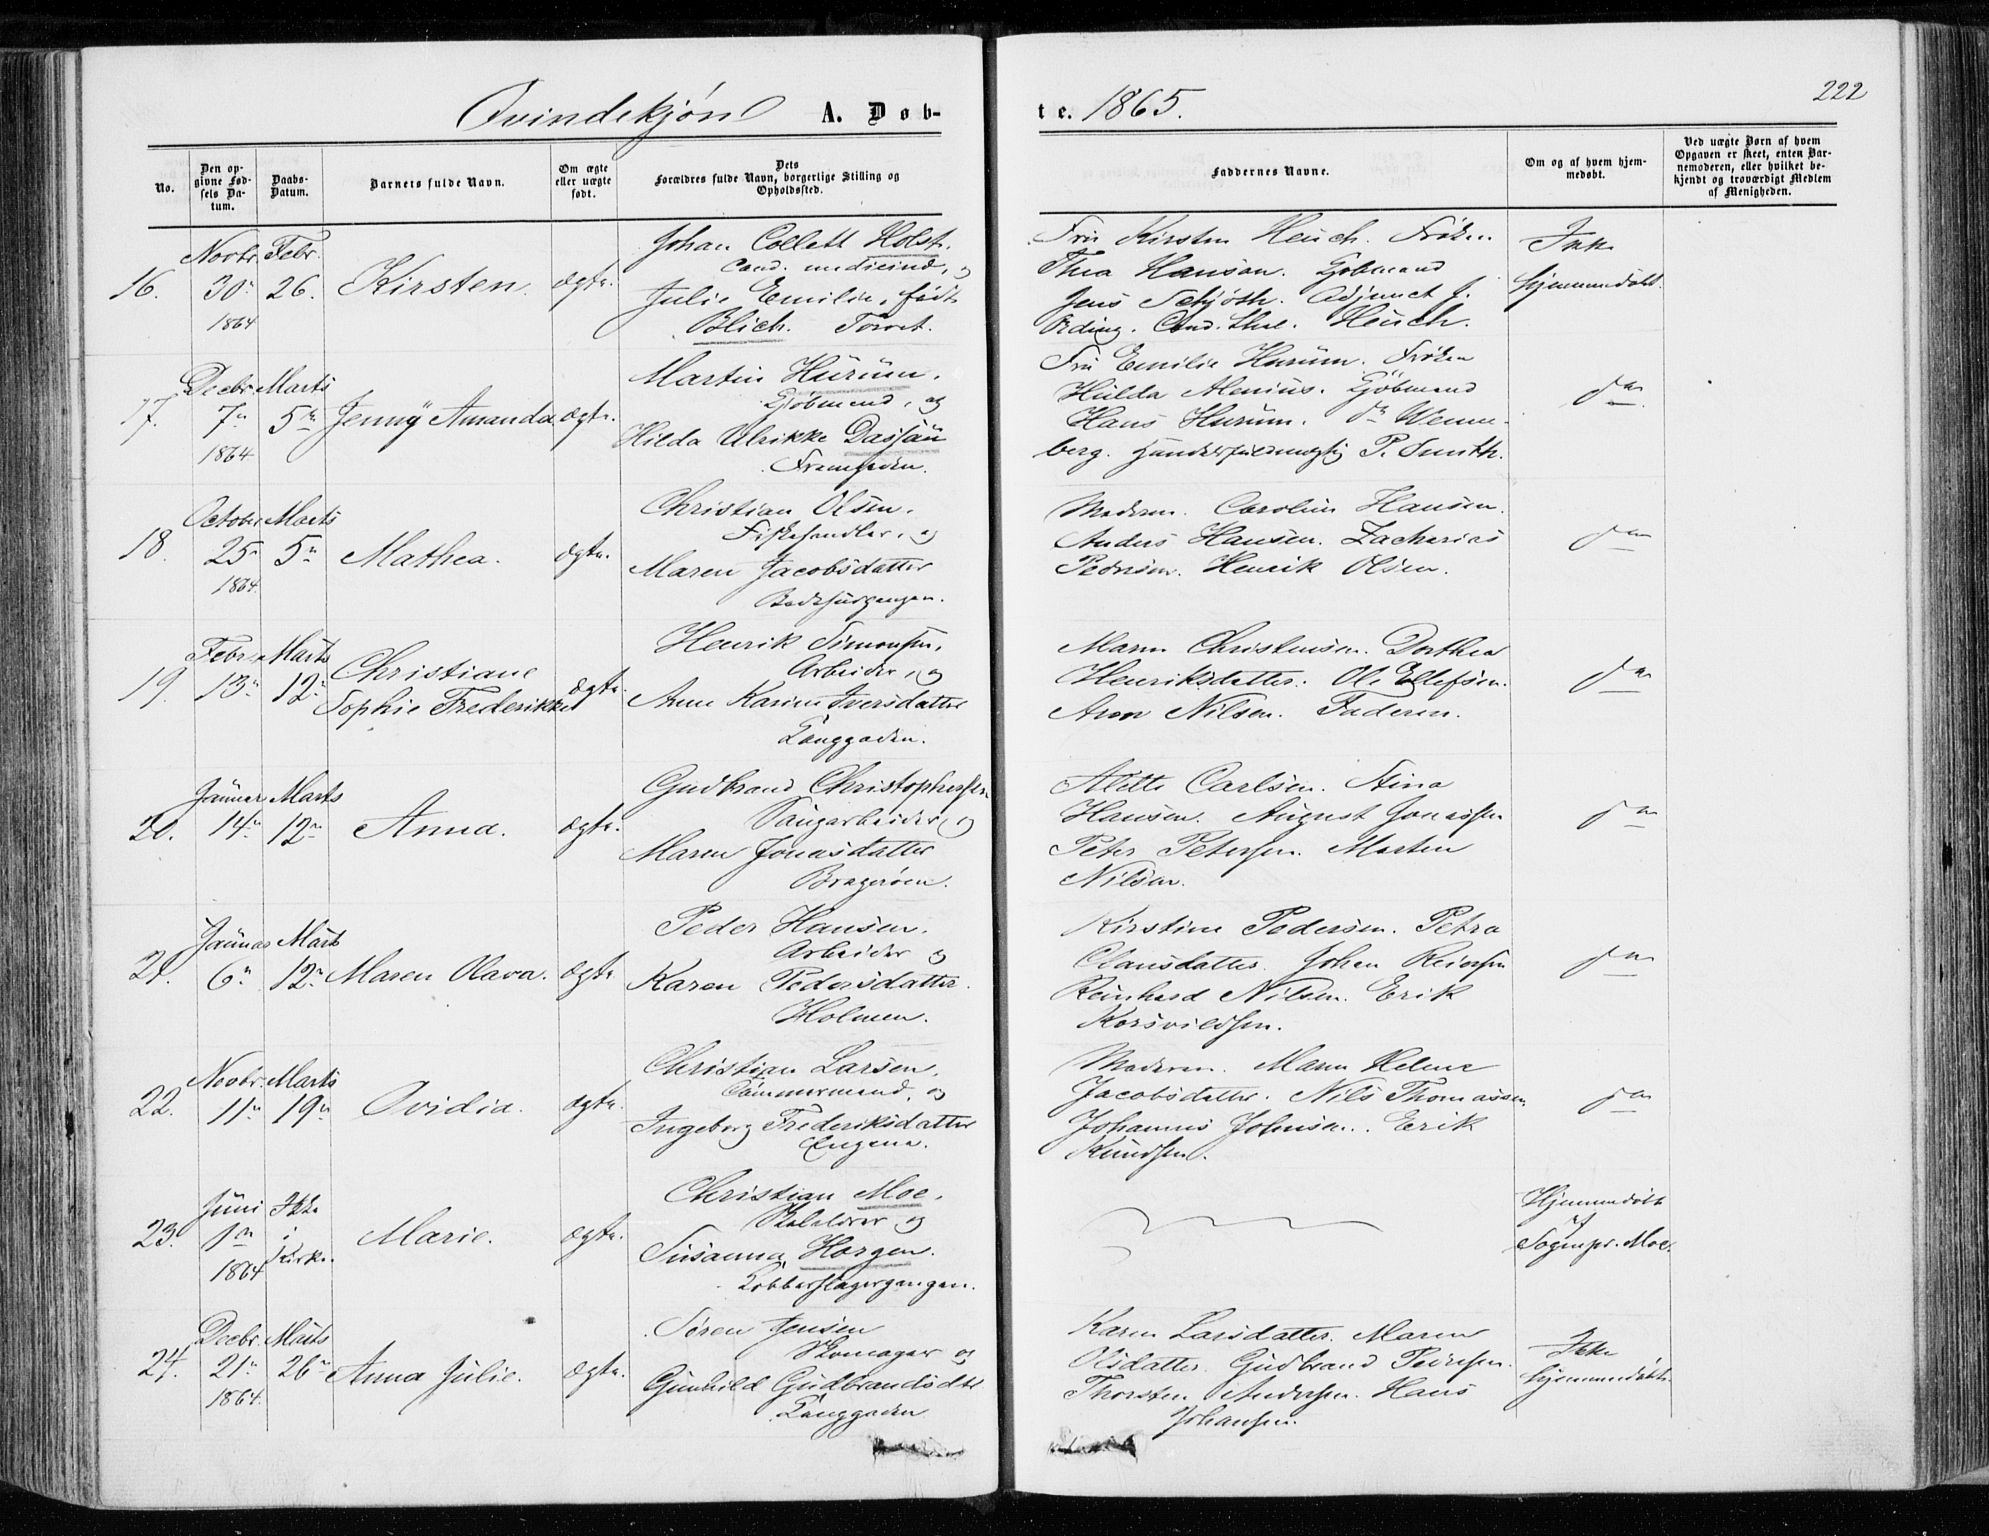 Qvindekjøn A. Døb-
te. 1865.
222
No.
Den op-
givne Fød-
sels Da-
tum.
Daabs-
Datum.
Barnets fulde Navn.
Om ægte
eller uægte
født.
Dets
Forældres fulde Navn, borgerlige Stilling og
Opholdssted.
Faddernes Navne.
Om og af hvem hjem-
medøbt.
Ved uægte Børn af hvem
Opgaven er skeet, enten Bar-
nemoderen, eller hvilket be-
kjendt og troværdigt Medlem
af Menigheden.
16.
Novbr
30
1864
Febr.
26.
Kirsten.
ægte.
Johan Collett Holst.
Cand. medicind, og
Julie Emilie, født
Blich. Torvet.
Fru Kirsten Heuch. Frøken
Thea Hanson. Kjøbmand
Jens Schjøth. Adjunct J.
Ording. Cand. theol. Heuch.
Ikke
hjemmedøbt.
17.
Decbr
7
1864
Marts
5
Jenny Amanda
ægte.
Martin Hurum,
Kjøbmand, og
Hilda Ulrikke Dassau
Fru Emilie Hurum. Frøken
Hulda Alenius. Kjøbmand
Hans Hurum. do Wenne-
berg. P. Smith.
do
18.
October
25
1864.
Marts
5
Mathea.
ægte.
Christian Olsen,
Fiskehandler, og
Maren Jacobsdatter
Moderen. Caroline Hansen.
Anders Hansen. Zacharias
Pedersen. Henrik Olsen.
do
19.
Febr
13
Marts
12
Christiane
Sophie Frederikke
ægte.
Henrik Simonsen,
Arbeider, og
Anne Karine Iversdatter
Langgaden.
Maren Christensen. Dorthea
Henriksdatter. Ole Ellefsen.
Aron Nilsen. Faderen.
do
20.
Januar
14
Marts
12
Anna.
ægte.
Gudbrand Christophersen
Saugarbeider, og
Maren Jonasdatter
Bragerøen.
Alette Carlsen. Stina
Hansen. August Jonassen
Peter Petersen. Morten
Nilsen.
do
21.
Januar
6
Marts
12
Maren Olava.
ægte.
Peder Hansen.
Arbeider og
Karen Pedersdatter.
Holmen.
Kirstine Pedersen. Petra
Clausdatter. Johan Reiersen
Reinhard Nilsen. Erik
Korsvildsen.
do
22.
Novbr.
11
Marts
19
Ovidia.
ægte.
Christian Larsen,
Tømmermand, og
Ingeborg Frederiksdatter
Engene.
Moderen. Maren Helene
Jacobsdatter. Nils Thomassen
Johannes Johnsen. Erik
Knudsen.
do
23.
Juni
1
1864
Ikke
i
Kirke.
Marie.
ægte.
Christian Moe,
Skolelærer og
Susanna Horgen.
Kobberslagergangen.
Hjemmedøbt
af
Sognepr. Moe.
24.
Decbr.
21
1864.
Marts
26
Anna Julie.
ægte.
Søren Jensen
Skomager og
Gunhild Gudbrandsdtr
Langgaden
Karen Larsdatter. Maren
Olsdatter. Gudbrand Pedersen.
Thorsten Andersen. Hans
Johansen.
Ikke
hjemmedøbt.